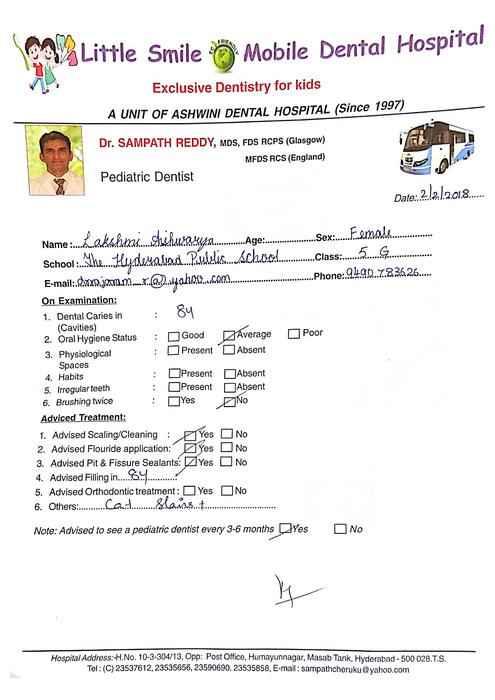 Little Smile Mobile Dental Hospital
ECO FRIENDLY
Exclusive Dentistry for kids
A UNIT OF ASHWINI DENTAL HOSPITAL (Since 1997)
Dr. SAMPATH REDDY, MDS, FDS RCPS (Glasgow)
MFDS RCS (England)
Pediatric Dentist
Date: 2/2/2018
Name: Lakshmi Aishwarya Age: Sex: Female
School: The Hyderabad Public School Class: 5 G
E-mail: @yahoo.com Phone: 9490783626
On Examination:
1. Dental Caries in : 84
(Cavities)
2. Oral Hygiene Status : Good Average Poor
3. Physiological : Present Absent
Spaces
4. Habits : Present Absent
5. Irregular teeth : Present Absent
6. Brushing twice : Yes No
Adviced Treatment:
1. Advised Scaling/Cleaning : Yes No
2. Advised Flouride application: Yes No
3. Advised Pit & Fissure Sealants: Yes No
4. Advised Filling in 84
5. Advised Orthodontic treatment : Yes No
6. Others: Cal Stains +
Note: Advised to see a pediatric dentist every 3-6 months Yes No
Hospital Address:-H.No. 10-3-304/13, Opp: Post Office, Humayunnagar, Masab Tank, Hyderabad - 500 028.T.S.
Tel : (C) 23537612, 23535656, 23590690, 23535858, E-mail : sampathcheruku@yahoo.com